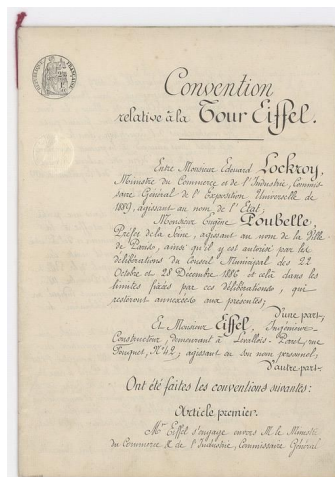 RÉPUBLIQUE FRANÇAISE
Convention
relative à la Tour Eiffel.
Entre Monsieur Edouard Lockroy,
Ministre du Commerce et de l'Industrie, Commis-
saire Général de l'Exposition Universelle de
1889, agissant au nom de l'Etat;
Monsieur Eugène Poubelle,
Préfet de la Seine, agissant au nom de la Ville
de Paris, ainsi qu'il y est autorisé par les
délibérations du Conseil Municipal des 22
Octobre et 28 Décembre 1886 et cela dans les
limites fixées par ces délibérations, qui
resteront annexées aux présentes;
D'une part,
Et Monsieur Eiffel, Ingénieur-
Constructeur, demeurant à Levallois-Perret, rue
Fouquet, N° 42; agissant en son nom personnel,
D'autre part.
Ont été faites les conventions suivantes:
Article premier.
Mr. Eiffel s'engage envers M. le Ministre
du Commerce & de l'Industrie, Commissaire Général